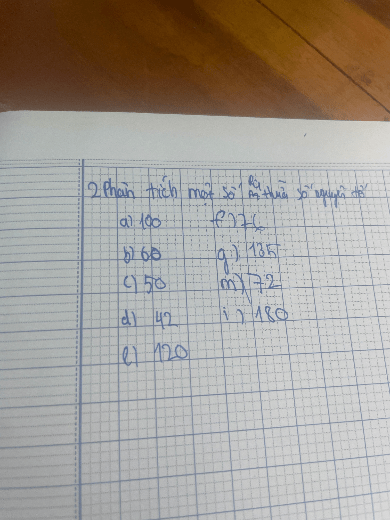 2 Phân tích một số ra thừa số nguyên tố
a) 100 f) 75
b) 60 g) 135
c) 50 m) 72
d) 42 i) 180
e) 120